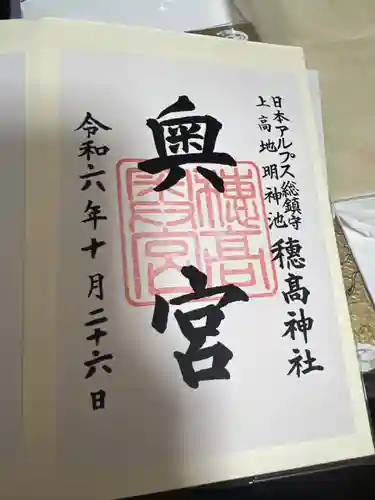 日本アルプス総鎮守
上高地明神池
穂高神社
奥宮
穂高奥宮
令和六年十月二十六日